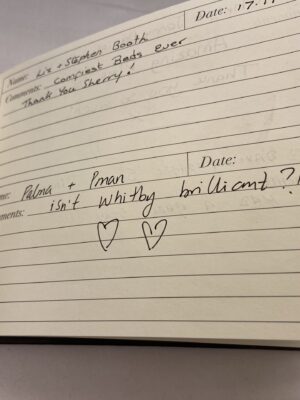 Date: 17.11
Name: Liz + Stephen Booth
Comments: Comfiest Beds ever
Thank You Sherry!
Date:
me: Palma + Pman
ments: isn't Whitby brilliant?!